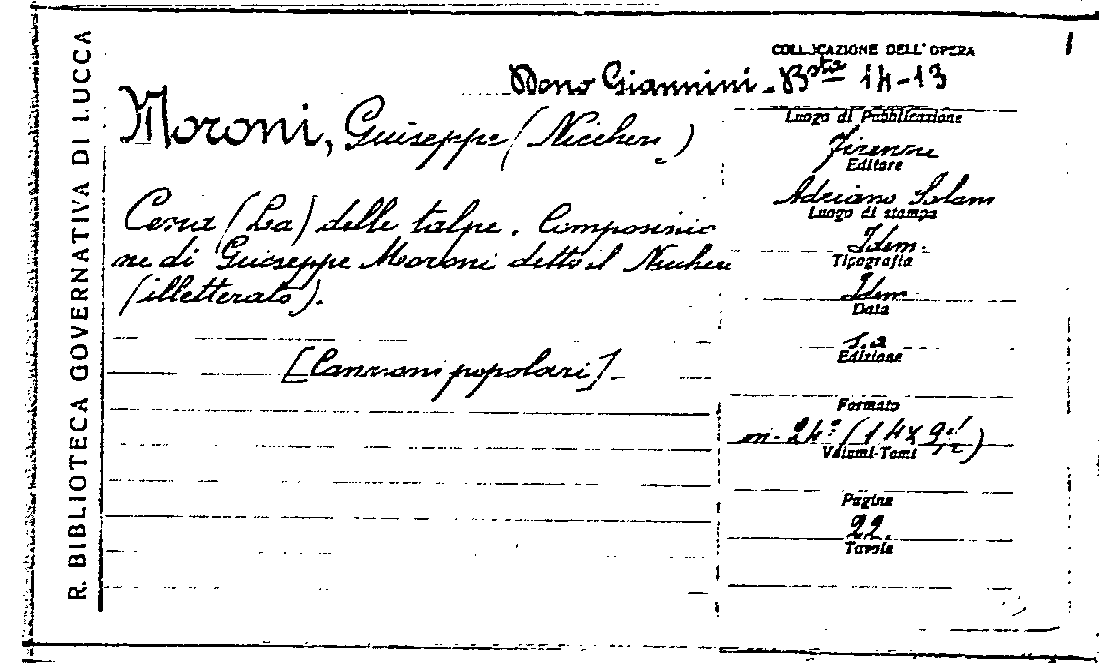 R. BIBLIOTECA GOVERNATIVA DI LUCCA
COLLOCAZIONE DELL'OPERA
Dono Giannini - Bsta 14-13
Moroni, Giuseppe (Niccheri)
Cena (La) delle talpe. Composizio
ne di Giuseppe Moroni detto il Niccheri
(illetterato).
[Canzoni popolari].
Luogo di Pubblicazione
Firenze
Editore
Adriano Salani
Luogo di stampa
Idem.
Tipografia
Idem
Data
s.a
Edizione
Formato
in-24° (14x9 1/2)
Volumi-Tomi
Pagine
22.
Tavole